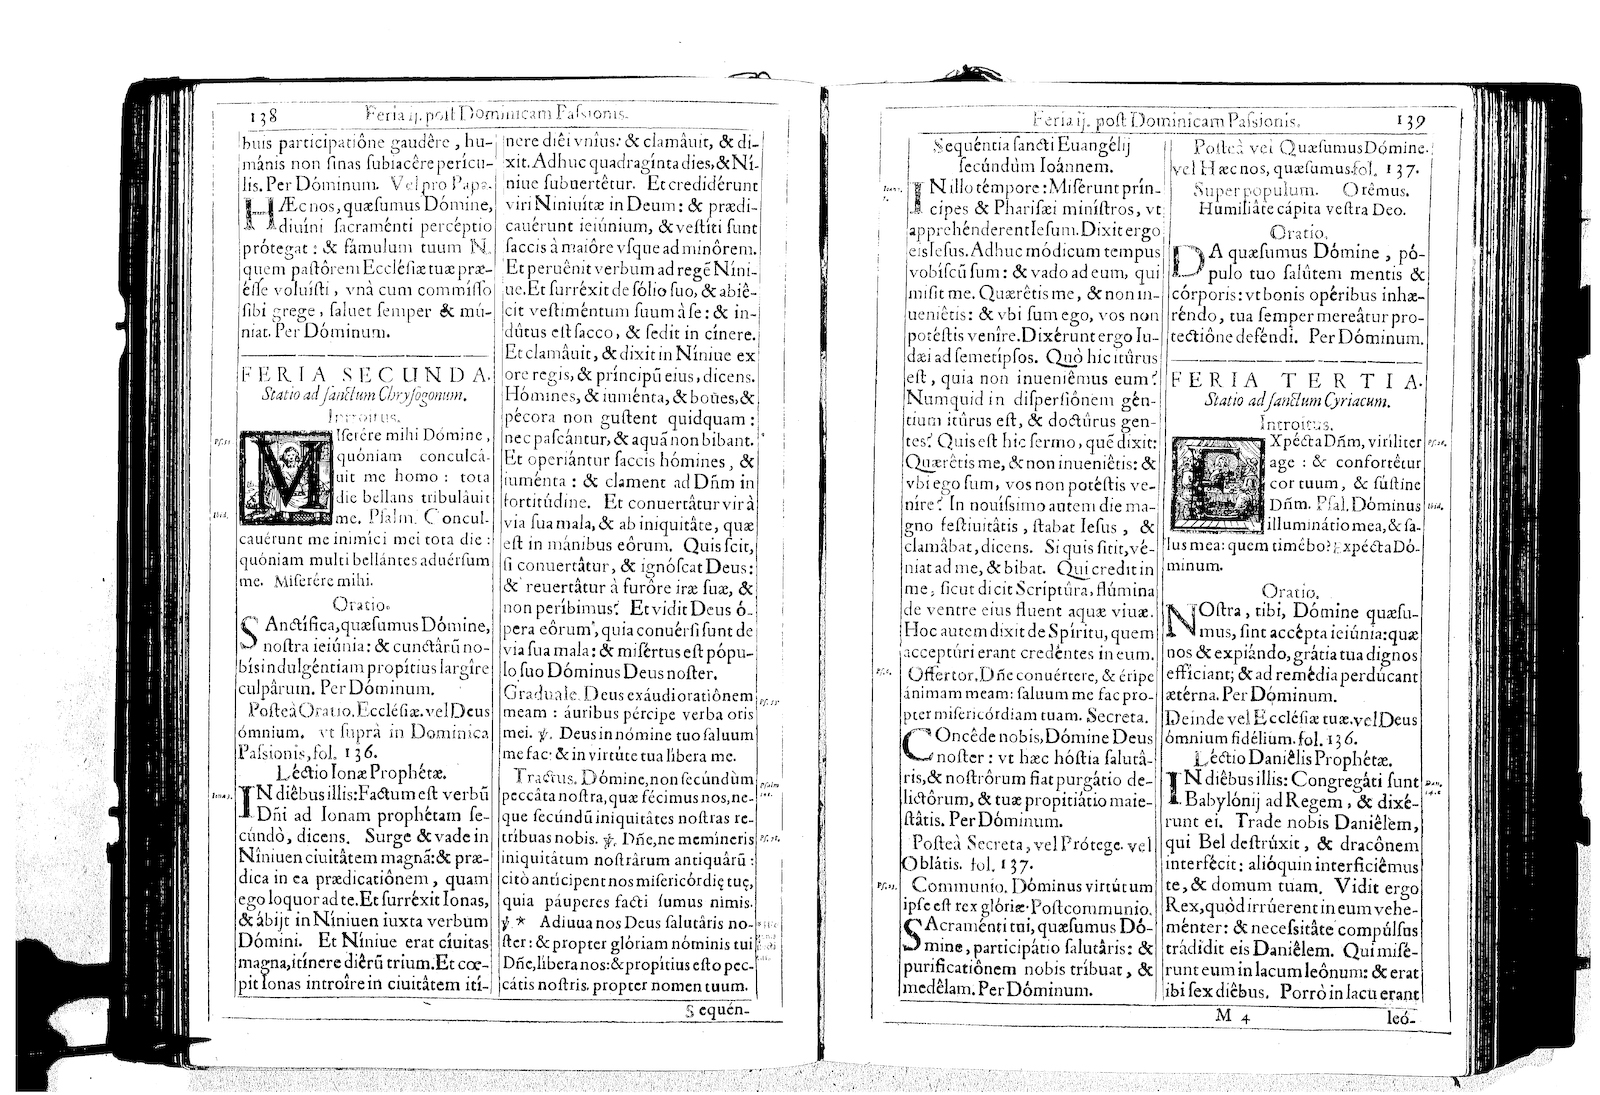 138 Feria ij. post Dominicam Passionis.
buis participatiône gaudêre, hu-
mánis non sinas subiacêre perícu-
lis. Per Dóminum. Vel pro Papa.
HÆc nos, quæsumus Dómine,
diuíni sacraménti percéptio
prótegat: & fámulum tuum N.
quem pastôrem Ecclésiæ tuæ præ-
ésse voluísti, vnà cum commísso
sibi grege, saluet semper & mú-
niat. Per Dóminum.
FERIA SECUNDA.
Statio ad sanctum Chrysogonum.
Introitus.
Ps. 55.
MIserére mihi Dómine,
quóniam conculcá-
uit me homo: tota
die bellans tribulâuit
Ibid.
me. Psalm. Concul-
cauérunt me inimíci mei tota die:
quóniam multi bellántes aduérsum
me. Miserére mihi.
Oratio.
SAnctífica, quæsumus Dómine,
nostra ieiúnia: & cunctârũ no-
bis indulgéntiam propítius largîre
culpârum. Per Dóminum.
Posteà Oratio. Ecclésiæ. vel Deus
ómnium. vt suprà in Domínica
Passionis, fol. 136.
Léctio Ionæ Prophétæ.
Ionæ 3.
IN diêbus illis: Factum est verbũ
Dñi ad Ionam prophétam se-
cúndò, dicens. Surge & vade in
Níniuen ciuitâtem magnã: & præ-
dica in ea prædicatiônem, quam
ego loquor ad te. Et surréxit Ionas,
& ábijt in Níniuen iuxta verbum
Dómini. Et Níniue erat cíuitas
magna, itínere diêrũ trium. Et cœ-
pit Ionas introîre in ciuitâtem ití-
nere diêi vnîus: & clamâuit, & di-
xit. Adhuc quadragínta dies, & Ní-
niue subuertêtur. Et credidérunt
viri Niniuítæ in Deum: & prædi-
cauérunt ieiúnium, & vestíti sunt
saccis à maiôre vsque ad minôrem.
Et peruênit verbum ad regẽ Níni-
ue. Et surréxit de sólio suo, & abiê-
cit vestiméntum suum à se: & in-
dûtus est sacco, & sedit in cínere.
Et clamâuit, & dixit in Níniue ex
ore regis, & príncipũ eius, dicens.
Hómines, & iuménta, & boues, &
pécora non gustent quidquam:
nec pascántur, & aquã non bibant.
Et operiántur saccis hómines, &
iuménta: & clament ad Dñm in
fortitúdine. Et conuertâtur vir à
via sua mala, & ab iniquitâte, quæ
est in mánibus eôrum. Quis scit,
si conuertâtur, & ignóscat Deus:
& reuertâtur à furôre iræ suæ, &
non períbimus? Et vidit Deus ó-
pera eôrum, quia conuérsi sunt de
via sua mala: & misértus est pópu-
lo suo Dóminus Deus noster.
Graduale. Deus exáudi oratiônem
Ps. 53.
meam: áuribus pércipe verba oris
mei. ℣. Deus in nómine tuo saluum
me fac: & in virtúte tua líbera me.
Tractus. Dómine, non secúndùm
Psalm
102.
peccâta nostra, quæ fécimus nos, ne-
que secúndũ iniquitâtes nostras re-
tríbuas nobis. ℣. Dñe, ne memíneris
Ps. 78.
iniquitâtum nostrârum antiquârũ:
citò antícipent nos misericórdię tuę,
quia páuperes facti sumus nimis.
℣ * Adiuua nos Deus salutâris no-
ster: & propter glóriam nóminis tui
Dñe, líbera nos: & propítius esto pec-
cátis nostris. propter nomen tuum.
Sequén-
Feria ij. post Dominicam Passionis. 139
Sequéntia sancti Euangélij
secúndùm Ioánnem.
Ioan.
7.
IN illo témpore: Misérunt prín-
cipes & Pharisæi minístros, vt
apprehénderent Iesum. Dixit ergo
eis Iesus. Adhuc módicum tempus
vobíscũ sum: & vado ad eum, qui
misit me. Quærêtis me, & non in-
ueniêtis: & vbi sum ego, vos non
potéstis venîre. Dixérunt ergo Iu-
dæi ad semetípsos. Quò hic itûrus
est, quia non inueniêmus eum?
Numquid in dispersiônem gén-
tium itûrus est, & doctûrus gen-
tes? Quis est hic sermo, quẽ dixit:
Quærêtis me, & non inueniêtis: &
vbi ego sum, vos non potéstis ve-
nîre? In nouíssimo autem die ma-
gno festiuitâtis, stabat Iesus, &
clamâbat, dicens. Si quis sitit, vé-
niat ad me, & bibat. Qui credit in
me, sicut dicit Scriptûra, flúmina
de ventre eius fluent aquæ viuæ.
Hoc autem dixit de Spíritu, quem
acceptúri erant credéntes in eum.
Ps. 6.
Offertor. Dñe conuértere, & éripe
ánimam meam: saluum me fac pro-
pter misericórdiam tuam. Secreta.
COncêde nobis, Dómine Deus
noster: vt hæc hóstia salutâ-
ris, & nostrôrum fiat purgátio de-
lictôrum, & tuæ propitiátio maie-
stâtis. Per Dóminum.
Posteà Secreta, vel Prótege. vel
Oblâtis. fol. 137.
Ps. 23.
Communio. Dóminus virtútum
ipse est rex glóriæ. Postcommunio.
SAcraménti tui, quæsumus Dó-
mine, participátio salutâris: &
purificatiônem nobis tríbuat, &
medêlam. Per Dóminum.
Posteà vel Quæsumus Dómine.
vel Hæc nos, quæsumus. fol. 137.
Super populum. Orêmus.
Humiliâte cápita vestra Deo.
Oratio.
DA quæsumus Dómine, pó-
pulo tuo salûtem mentis &
córporis: vt bonis opéribus inhæ-
réndo, tua semper mereâtur pro-
tectiône deféndi. Per Dóminum.
FERIA TERTIA.
Statio ad sanctum Cyriacum.
Introitus.
EXpécta Dñm, viríliter
Ps. 26.
age: & confortêtur
cor tuum, & sústine
Dñm. Psal. Dóminus
Ibid.
illuminátio mea, & sa-
lus mea: quem timébo? Expécta Dó-
minum.
Oratio.
NOstra, tibi, Dómine quæsu-
mus, sint accépta ieiúnia: quæ
nos & expiándo, grátia tua dignos
effíciant; & ad remédia perdúcant
ætérna. Per Dóminum.
Deinde vel Ecclésiæ tuæ. vel Deus
ómnium fidélium. fol. 136.
Léctio Daniêlis Prophétæ.
Dan.
14.
IN diêbus illis: Congregáti sunt
Babylónij ad Regem, & dixé-
runt ei. Trade nobis Daniêlem,
qui Bel destrúxit, & dracônem
interfécit: alióquin interficiêmus
te, & domum tuam. Vidit ergo
Rex, quòd irrúerent in eum vehe-
ménter: & necessitâte compúlsus
trádidit eis Daniêlem. Qui misé-
runt eum in lacum leônum: & erat
ibi sex diêbus. Porrò in lacu erant
M 4 leó-